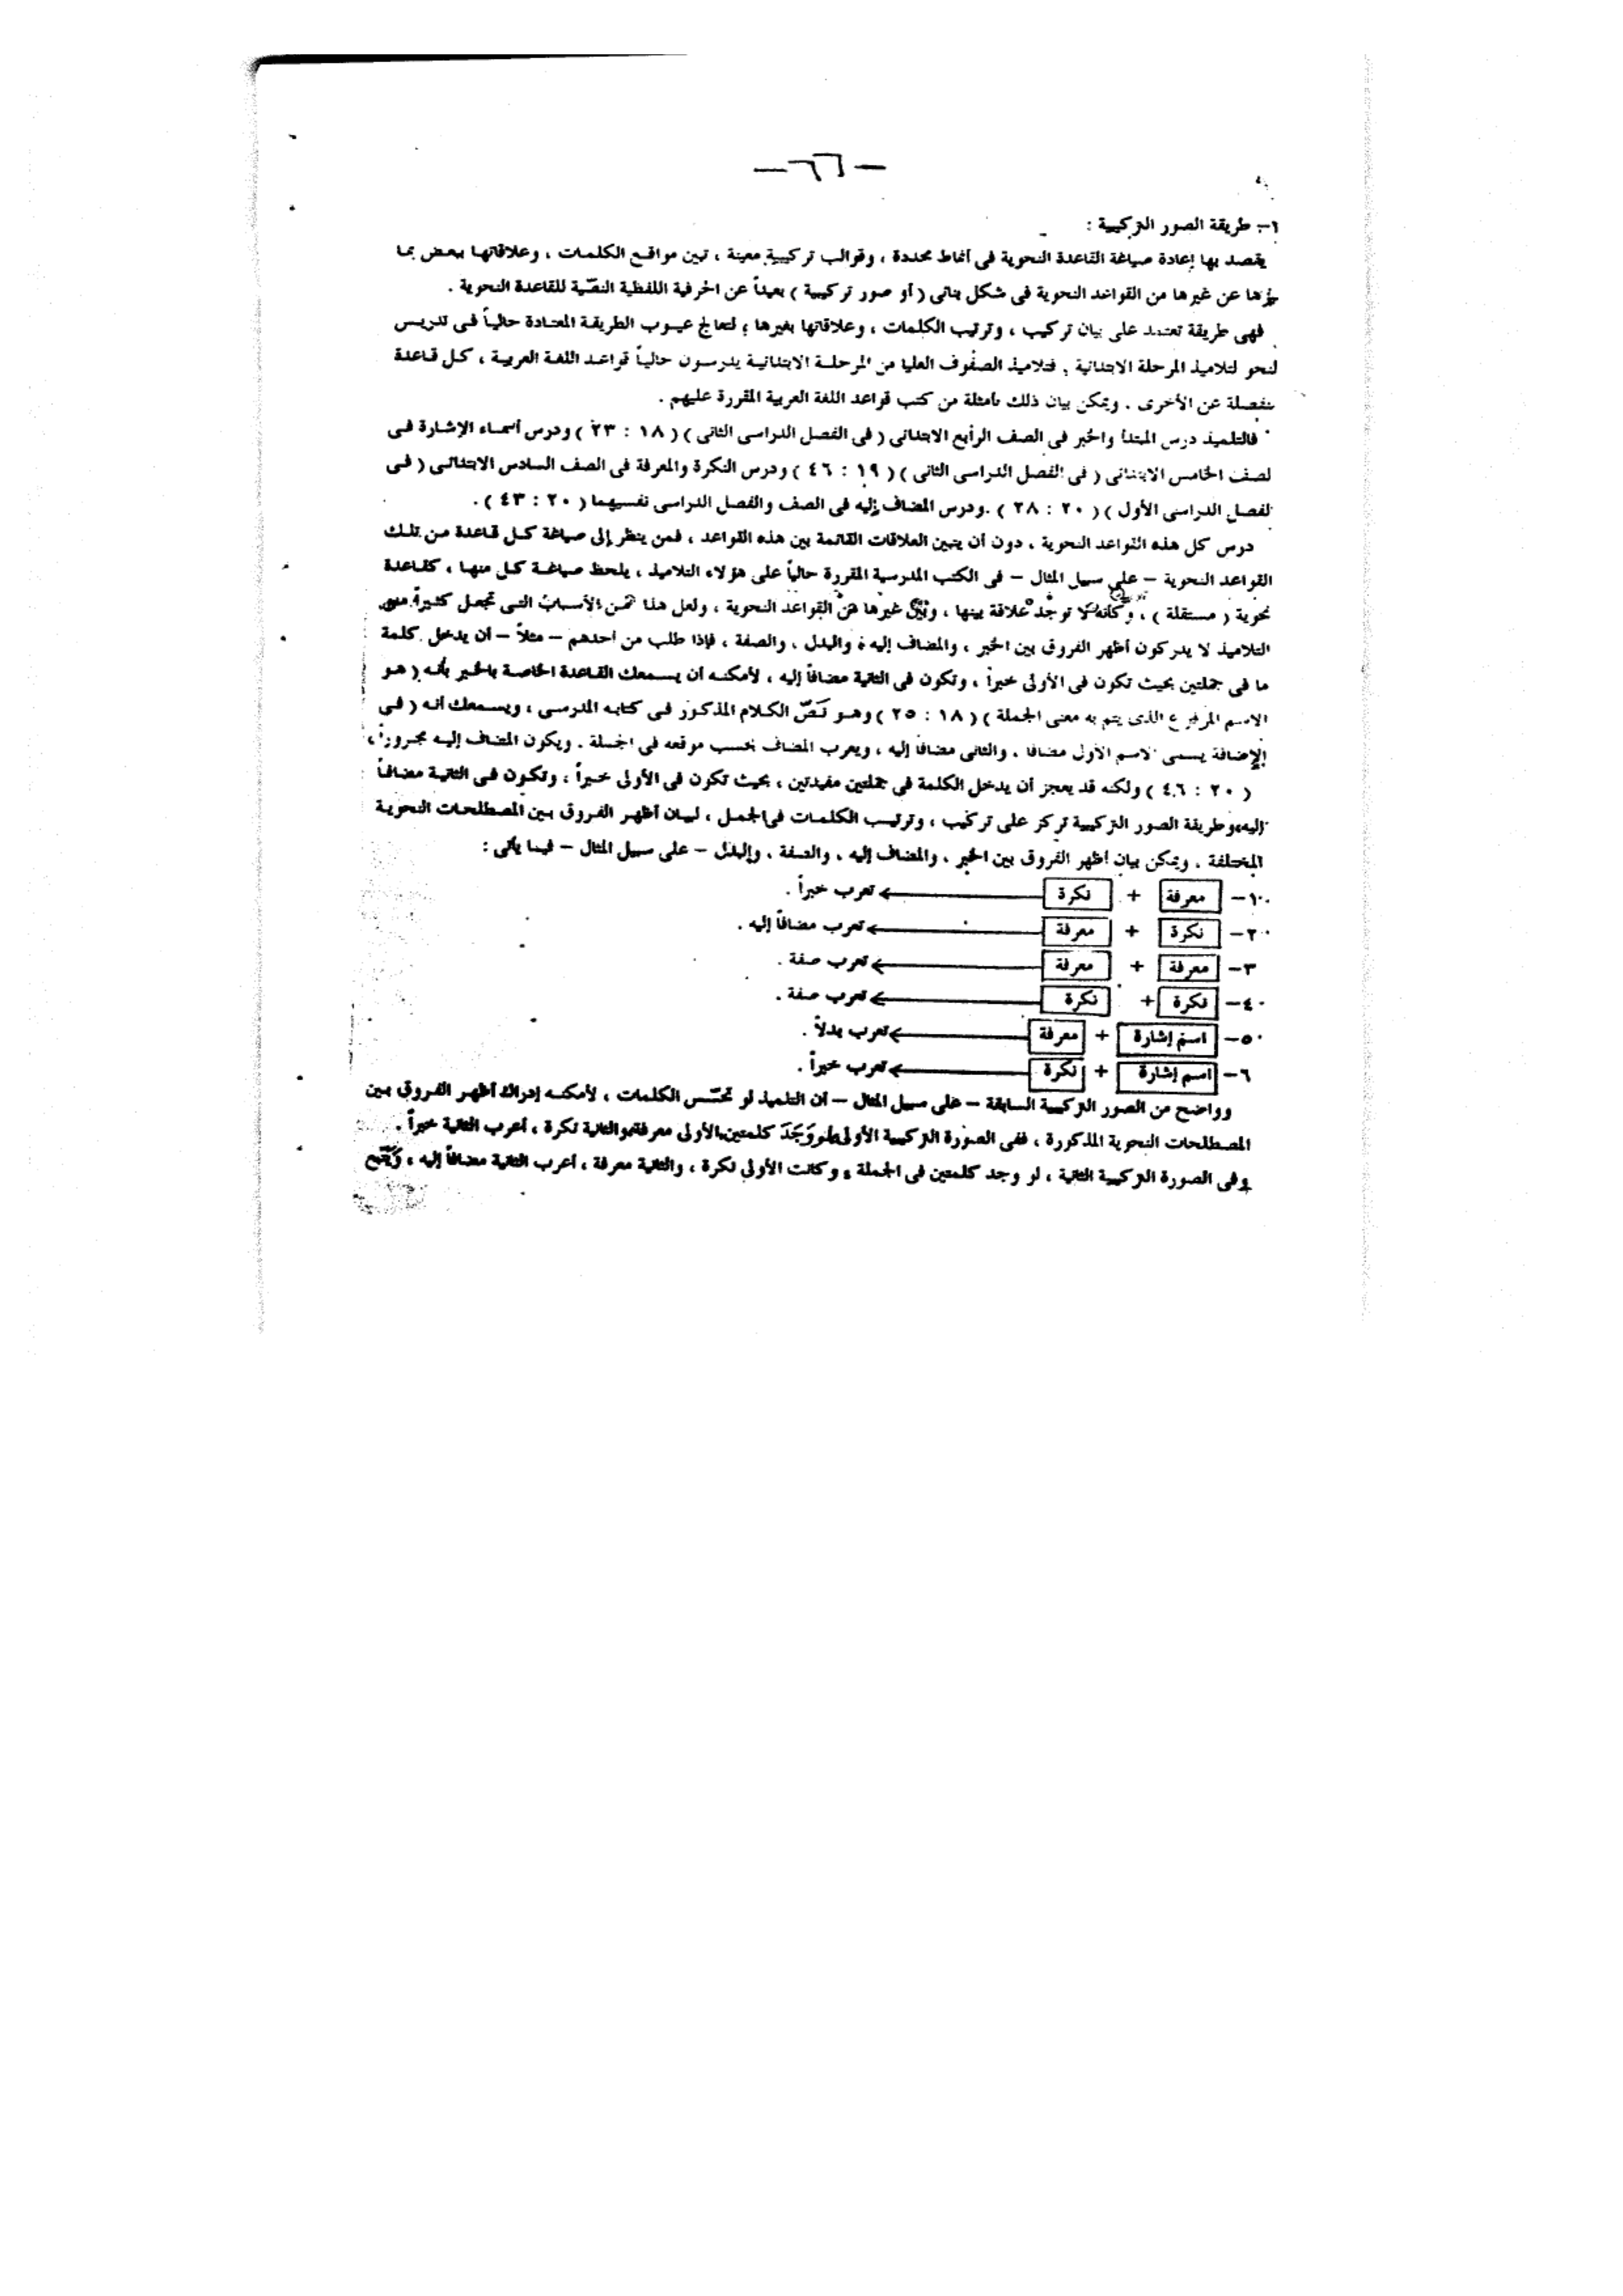 -٦٦-
٦- طريقة الصور التركيبية :
يقصد بها إعادة صياغة القاعدة النحوية فى أنماط محددة ، وقوالب تركيبية معينة ، تبين مواقع الكلمات ، وعلاقاتها ببعض بما
يميزها عن غيرها من القواعد النحوية فى شكل بنائى ( أو صور تركيبية ) بعيداً عن الحرفية اللفظية النصّية للقاعدة النحوية .
فهى طريقة تعتمد على بيان تركيب ، وترتيب الكلمات ، وعلاقاتها بغيرها ؛ لتعالج عيوب الطريقة المعتادة حالياً فى تدريس
لنحو لتلاميذ المرحلة الابتدائية . فتلاميذ الصفوف العليا من المرحلة الابتدائية يدرسون حالياً قواعد اللغة العربية ، كل قاعدة
نفصلة عن الأخرى . ويمكن بيان ذلك بأمثلة من كتب قواعد اللغة العربية المقررة عليهم .
فالتلميذ درس المبتدأ والخبر فى الصف الرابع الابتدائى ( فى الفصل الدراسى الثانى ) ( ١٨ : ٢٣ ) ودرس أسماء الإشارة فى
لصف الخامس الابتدائى ( فى الفصل الدراسى الثانى ) ( ١٩ : ٤٦ ) ودرس النكرة والمعرفة فى الصف السادس الابتدائى ( فى
لفصل الدراسى الأول ) ( ٢٠ : ٢٨ ) .ودرس المضاف إليه فى الصف والفصل الدراسى نفسيهما ( ٢٠ : ٤٣ ) .
درس كل هذه القواعد النحوية ، دون أن يتبين العلاقات القائمة بين هذه القواعد ، فمن ينظر إلى صياغة كل قاعدة من تلك
القواعد النحوية – على سبيل المثال – فى الكتب المدرسية المقررة حالياً على هؤلاء التلاميذ ، يلحظ صياغة كل منها ، كقاعدة
نحوية ( مستقلة ) ، وكأنه لا توجد علاقة بينها ، وبين غيرها من القواعد النحوية ، ولعل هذا من الأسباب التى تجعل كثيراً من
التلاميذ لا يدركون أظهر الفروق بين الخبر ، والمضاف إليه ، والبدل ، والصفة ، فإذا طلب من أحدهم – مثلاً – أن يدخل كلمة
ما فى جملتين بحيث تكون فى الأولى خبراً ، وتكون فى الثانية مضافاً إليه ، لأمكنه أن يسمعك القاعدة الخاصة بالخبر بأنه ( هو
الاسم المرفوع الذى يتم به معنى الجملة ) ( ١٨ : ٢٥ ) وهو نَصّ الكلام المذكور فى كتابه المدرسى ، ويسمعك أنه ( فى
الإضافة يسمى الاسم الأول مضافا ، والثانى مضافا إليه ، ويعرب المضاف بحسب موقعه فى الجملة . ويكون المضاف إليه مجروراً ،
( ٢٠ : ٤٦ ) ولكنه قد يعجز أن يدخل الكلمة فى جملتين مفيدتين ، بحيث تكون فى الأولى خبراً ، وتكون فى الثانية مضافاً
إليه،وطريقة الصور التركيبية تركز على تركيب ، وترتيب الكلمات فى الجمل ، لبيان أظهر الفروق بين المصطلحات النحوية
المختلفة . ويمكن بيان أظهر الفروق بين الخبر ، والمضاف إليه ، والصفة ، والبدل – على سبيل المثال – فيما يأتى :
١- معرفة + نكرة ← تعرب خبراً .
٢- نكرة + معرفة ← تعرب مضافاً إليه .
٣- معرفة + معرفة ← تعرب صفة .
٤- نكرة + نكرة ← تعرب صفة .
٥- اسم إشارة + معرفة ← تعرب بدلاً .
٦- اسم إشارة + نكرة ← تعرب خبراً .
وواضح من الصور التركيبية السابقة – على سبيل المثال – أن التلميذ لو تحسّس الكلمات ، لأمكنه إدراك أظهر الفروق بين
المصطلحات النحوية المذكورة ، ففى الصورة التركيبية الأولى لو وَجَدَ كلمتين،الأولى معرفة،والثانية نكرة ، أعرب الثانية خبراً .
وفى الصورة التركيبية الثانية ، لو وجد كلمتين فى الجملة ، وكانت الأولى نكرة ، والثانية معرفة ، أعرب الثانية مضافاً إليه ،